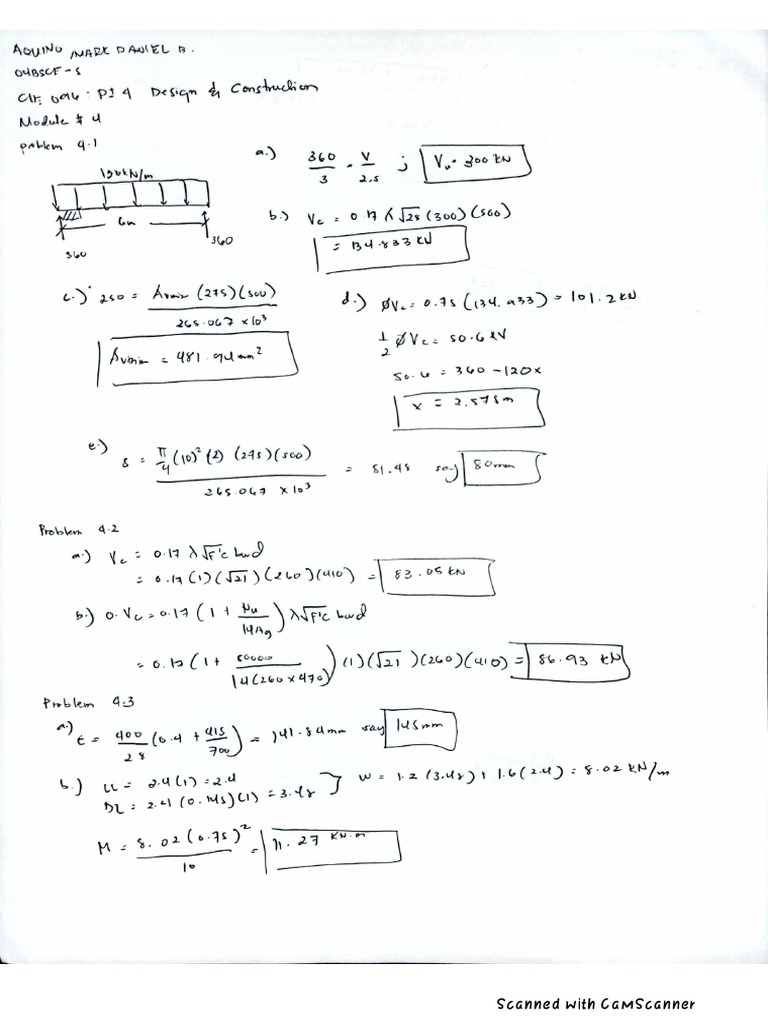 AQUINO MARK DANIEL B.
04BSCE-S
CIE 096: P I 4 Design & Construction
Module # 4
problem 4.1
120kN/m
6m
360
360
a.) 360/3 = V/2.5 ; Vu = 300 kN
b.) Vc = 0.17 λ √28 (300)(500)
= 134.933 kN
c.) 250 = Avmin (275)(500) / 265.067 x10³
Avmin = 481.94 mm²
d.) ØVc = 0.75 (134.933) = 101.2 kN
1/2 ØVc = 50.6 kN
50.6 = 360 - 120x
x = 2.578m
e.) s = π/4 (10)² (2) (275)(500) / 265.067 x 10³ = 81.48 say 80mm
Problem 4.2
a.) Vc = 0.17 λ √F'c bwd
= 0.17 (1) (√21) (260) (410) = 83.05 kN
b.) 0. Vc = 0.17 (1 + Nu/14Ag) λ√F'c bwd
= 0.17 (1 + 80000/14(260x470)) (1) (√21) (260) (410) = 86.93 kN
Problem 4.3
a.) t = 400/28 (0.4 + 415/700) = 141.84mm say 145mm
b.) LL = 2.4(1) = 2.4
DL = 24 (0.145)(1) = 3.48
} W = 1.2 (3.48) + 1.6(2.4) = 8.02 kN/m
M = 8.02(0.75)²/10 = 11.27 kN.m
Scanned with CamScanner